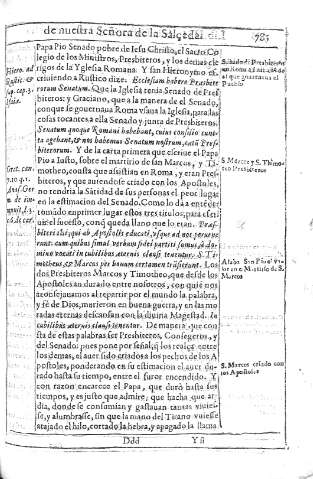 de nuestra Señora de la Salceda.
785
Papa Pio Senado pobre de Iesu Christo, el Sacro Co-
legio de los Ministros, Presbiteros, y los demas cle-
rigos de la Yglesia Romana. Y san Hieronymo es-
criuiendo a Rustico dize: Ecclesiam habere Presbite-
rorum Senatum. Que la Iglesia tenia Senado de Pres-
biteros; y Graciano, que a la manera de el Senado,
conque se gouernaua Roma vsaua la Iglesia, para las
cosas tocantes a ella Senado y junta de Presbiteros.
Senatum quoque Romani habebant, cuius consilio cuncta
agebant, & nos habemus Senatum nostrum, cætũ Presbi-
terorum. Y de la carta primera que escriue el Papa
Pio a Iusto, sobre el martirio de san Marcos, y Ti-
motheo, consta que asistian en Roma, y eran Pres-
biteros, y que auiendose criado con los Apostoles,
no tendria la Sãtidad de sus personas el peor lugar
en la estimacion del Senado. Como lo da a entẽder
tomãdo
imprimer lugar estos tres titulos, para escri
uir el sucesso, conq̃ queda llano que lo eran. Presbi-
teri illi, qui ab Apostolis educati, vsque ad nos peruene
runt: cum quibus simul verbum fidei partiti sumus, à do-
mino vocati in cubilibus æternis clausi tenentur. S. Ti-
motheus, & Marcus per bonum certamen trãsierunt. Los
dos Presbiteros Marcos y Timotheo, que desde los
Apostoles an durado entre nosotros, con quiẽ nos
aconsejauamos al repartir por el mundo la palabra,
y fè de Dios, murieron en buena guerra, y en las mo
radas eternas descansan con la diuina Magestad. In
cubilibus æternis clausi tenentur. De manera que con
sta de estas palabras ser Presbiteros, Consegeros, y
del Senado: pues pone por señal, q̃ los realça entre
los demas, el auer sido criados a los pechos de los A-
postoles, ponderando en su estimacion el auer du-
rado hasta su tiempo, entre el furor encendido. Y
con razon encarece el Papa, que durò hasta sus
tiempos, y es justo que admire, que hacha que ar-
dia, donde se consumian y gastauan tantas viuies-
se, y alumbrasse, sin que la mano del Tirano vuiesse
atajado el hilo, cortado la hebra, y apagado la llama
Ddd
Y si
Senado de Presbiteros
S. Marcos y S. Timo-
teo Presbiteros
S. Marcos criado con
los Apostoles